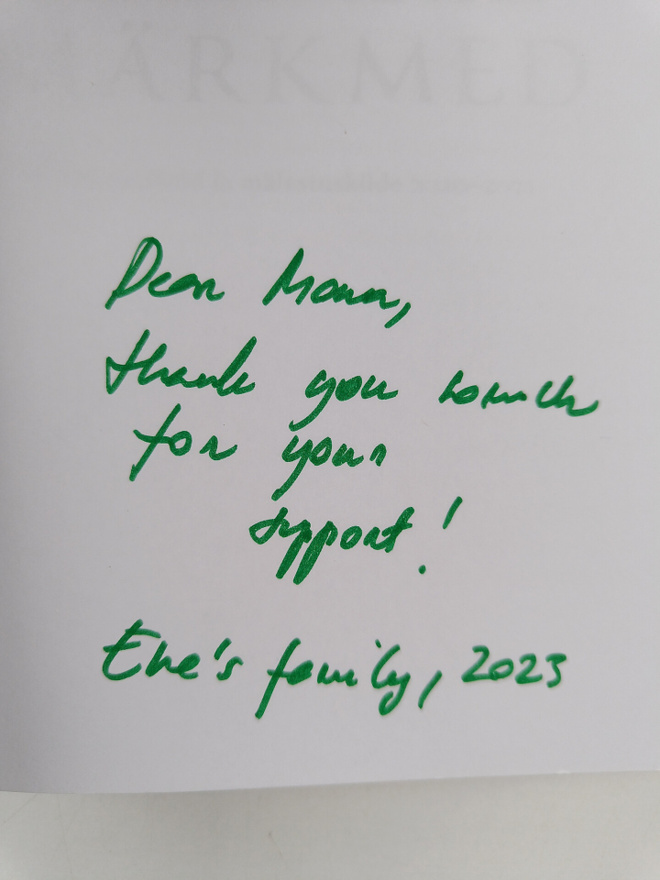 MÄRKMED
Dear Mana,
thank you somuch
for your
support!
Ene's family, 2023